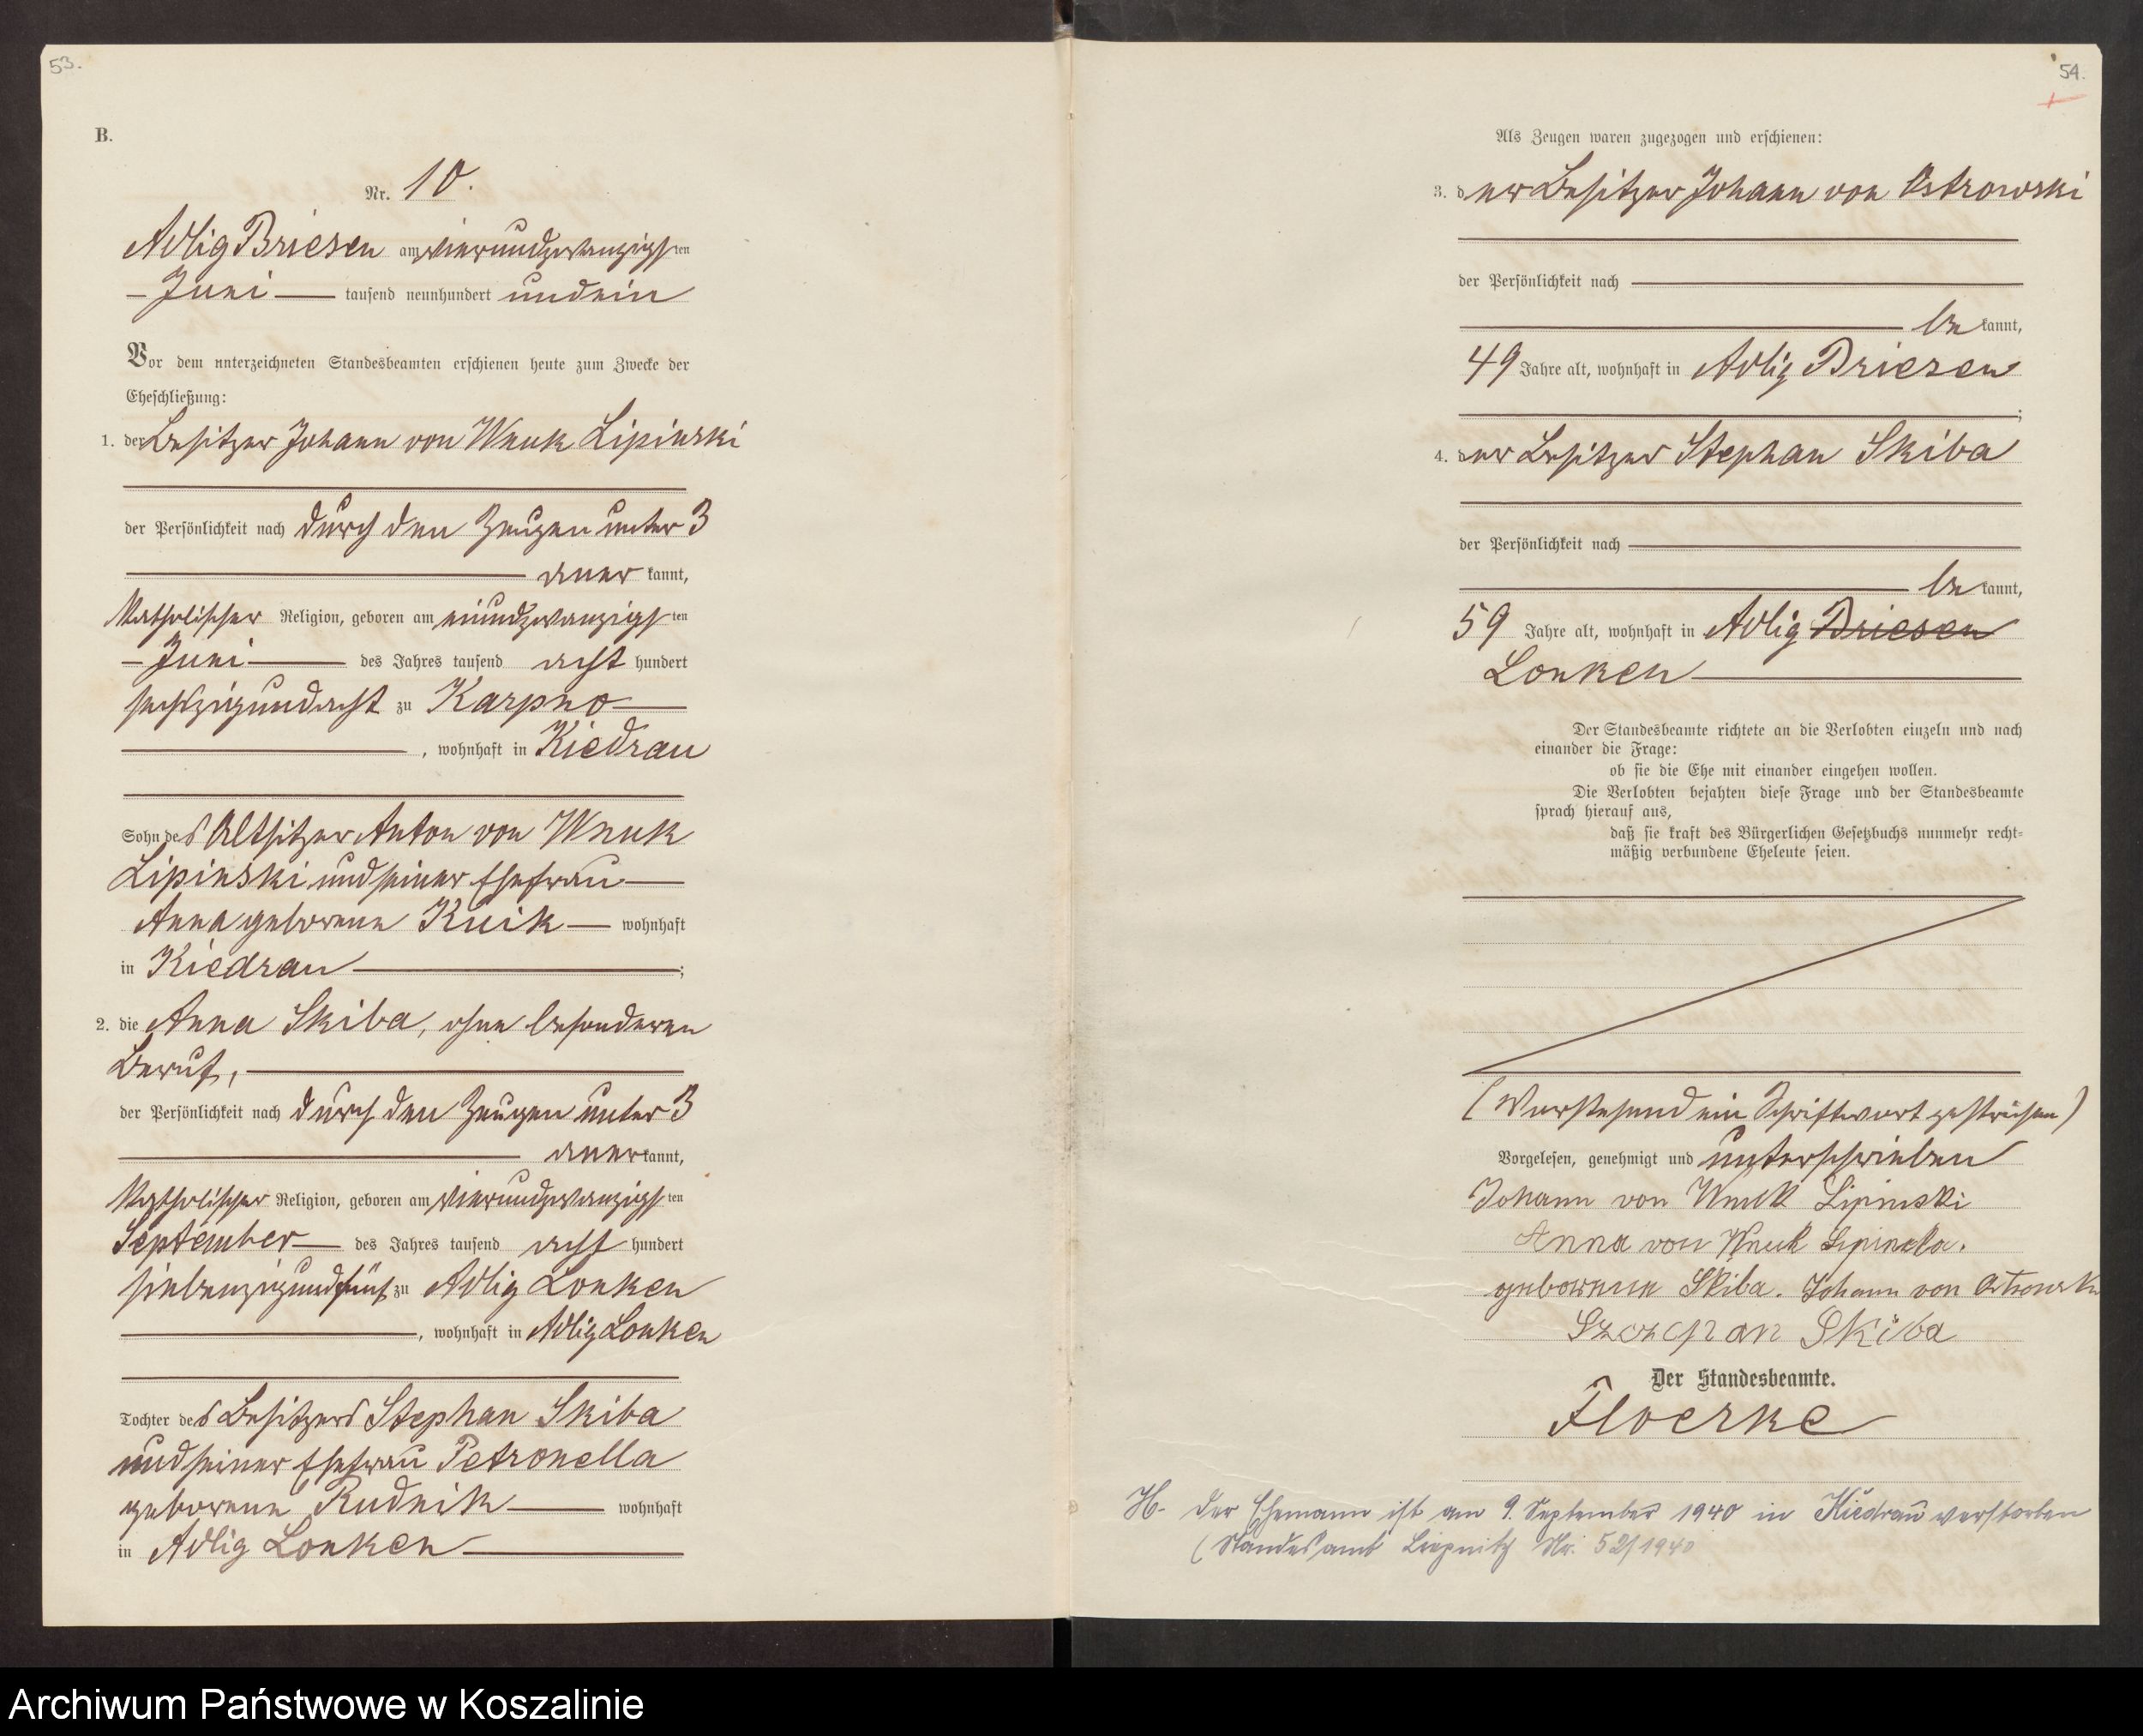 53.
B.
Nr. 10.
Adlig Briesen am vierundzwanzigsten
Juni tausend neunhundert undein
Vor dem unterzeichneten Standesbeamten erschienen heute zum Zwecke der
Eheschließung:
1. der Besitzer Johann von Wnuk Lipinski
der Persönlichkeit nach durch den Zeugen unter 3
aner kannt,
katholischer Religion, geboren am einundzwanzigsten
Juni des Jahres tausend acht hundert
sechszigundacht zu Karpno
, wohnhaft in Kiedrau
Sohn des Altsitzer Anton von Wnuk
Lipinski und seiner Ehefrau
Anna geborene Kuik wohnhaft
in Kiedrau ;
2. die Anna Skiba, ohne besonderen
Beruf,
der Persönlichkeit nach durch den Zeugen unter 3
aner kannt,
katholischer Religion, geboren am vierundzwanzigsten
September des Jahres tausend acht hundert
siebenzigundfünf zu Adlig Lonken
, wohnhaft in Adlig Lonken
Tochter des Besitzers Stephan Skiba
und seiner Ehefrau Petronella
geborene Rudnik wohnhaft
in Adlig Lonken
54.
Als Zeugen waren zugezogen und erschienen:
3. der Besitzer Johann von Ostrowski
der Persönlichkeit nach
be kannt,
49 Jahre alt, wohnhaft in Adlig Briesen
;
4. der Besitzer Stephan Skiba
der Persönlichkeit nach
be kannt,
59 Jahre alt, wohnhaft in Adlig Briesen
Lonken
Der Standesbeamte richtete an die Verlobten einzeln und nach
einander die Frage:
ob sie die Ehe mit einander eingehen wollen.
Die Verlobten bejahten diese Frage und der Standesbeamte
sprach hierauf aus,
daß sie kraft des Bürgerlichen Gesetzbuchs nunmehr recht=
mäßig verbundene Eheleute seien.
(Vorstehend ein Schriftwort gestrichen)
Vorgelesen, genehmigt und unterschrieben
Johann von Wnuk Lipinski
Anna von Wnuk Lipinska.
geborene Skiba. Johann von Ostrowski
Szczepan Skiba
Der Standesbeamte.
Floerke
H. Der Ehemann ist am 9. September 1940 in Kiedrau verstorben
(Standesamt Liepnitz Nr. 52/1940
Archiwum Państwowe w Koszalinie